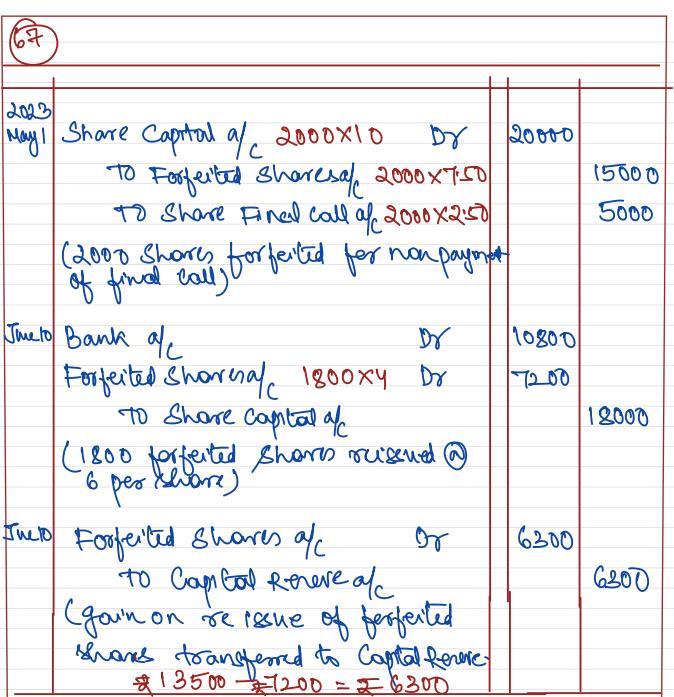 67
2023
May 1 Share Capital a/c 2000×10 Dr 20000
To Forfeited Shares a/c 2000×7.50 15000
To Share Final call a/c 2000×2.50 5000
(2000 Shares forfeited for non payment
of final call)
June 10 Bank a/c Dr 10800
Forfeited Shares a/c 1800×4 Dr 7200
To Share Capital a/c 18000
(1800 forfeited shares reissued @
6 per share)
June 10 Forfeited Shares a/c Dr 6300
To Capital Reserve a/c 6300
(gain on re issue of forfeited
shares transferred to Capital Reserve
₹ 13500 - ₹ 7200 = ₹ 6300